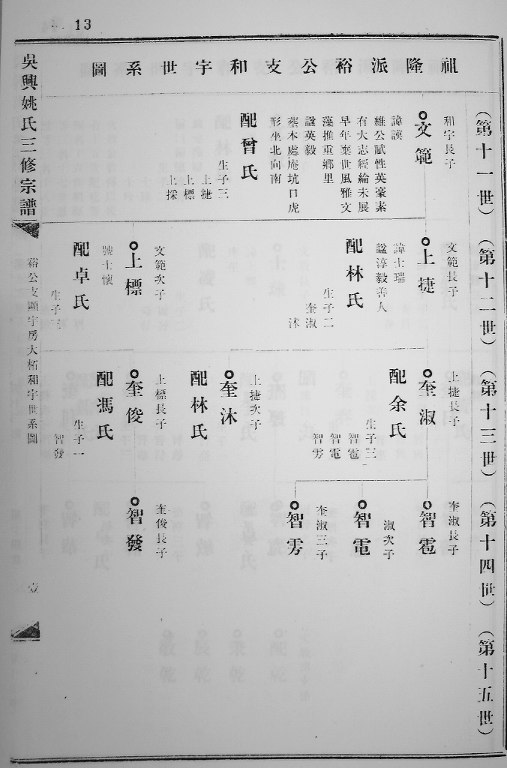 13
祖隆派裕公支和宇世系圖
(第十一世)
(第十二世)
(第十三世)
(第十四世)
(第十五世)
和宇長子
文範
諱謨
雄公賦性英豪素
有大志經綸未展
早年棄世風雅文
藻推重鄉里
諡英毅
葬本處庵坑口虎
形坐北向南
配曾氏
生子三
上捷
上標
上採
文範長子
上捷
諱士瑞
諡淳毅善人
配林氏
生子二
奎淑
沐
文範次子
上標
號士懷
配卓氏
生子
上捷長子
奎淑
配余氏
生子三
智雹
智電
智雱
上捷次子
奎沐
配林氏
上標長子
奎俊
配馮氏
生子一
智發
奎淑長子
智雹
淑次子
智電
奎淑三子
智雱
奎俊長子
智發
吳興姚氏三修宗譜
裕公支顯宇房大柘和宇世系圖
壹